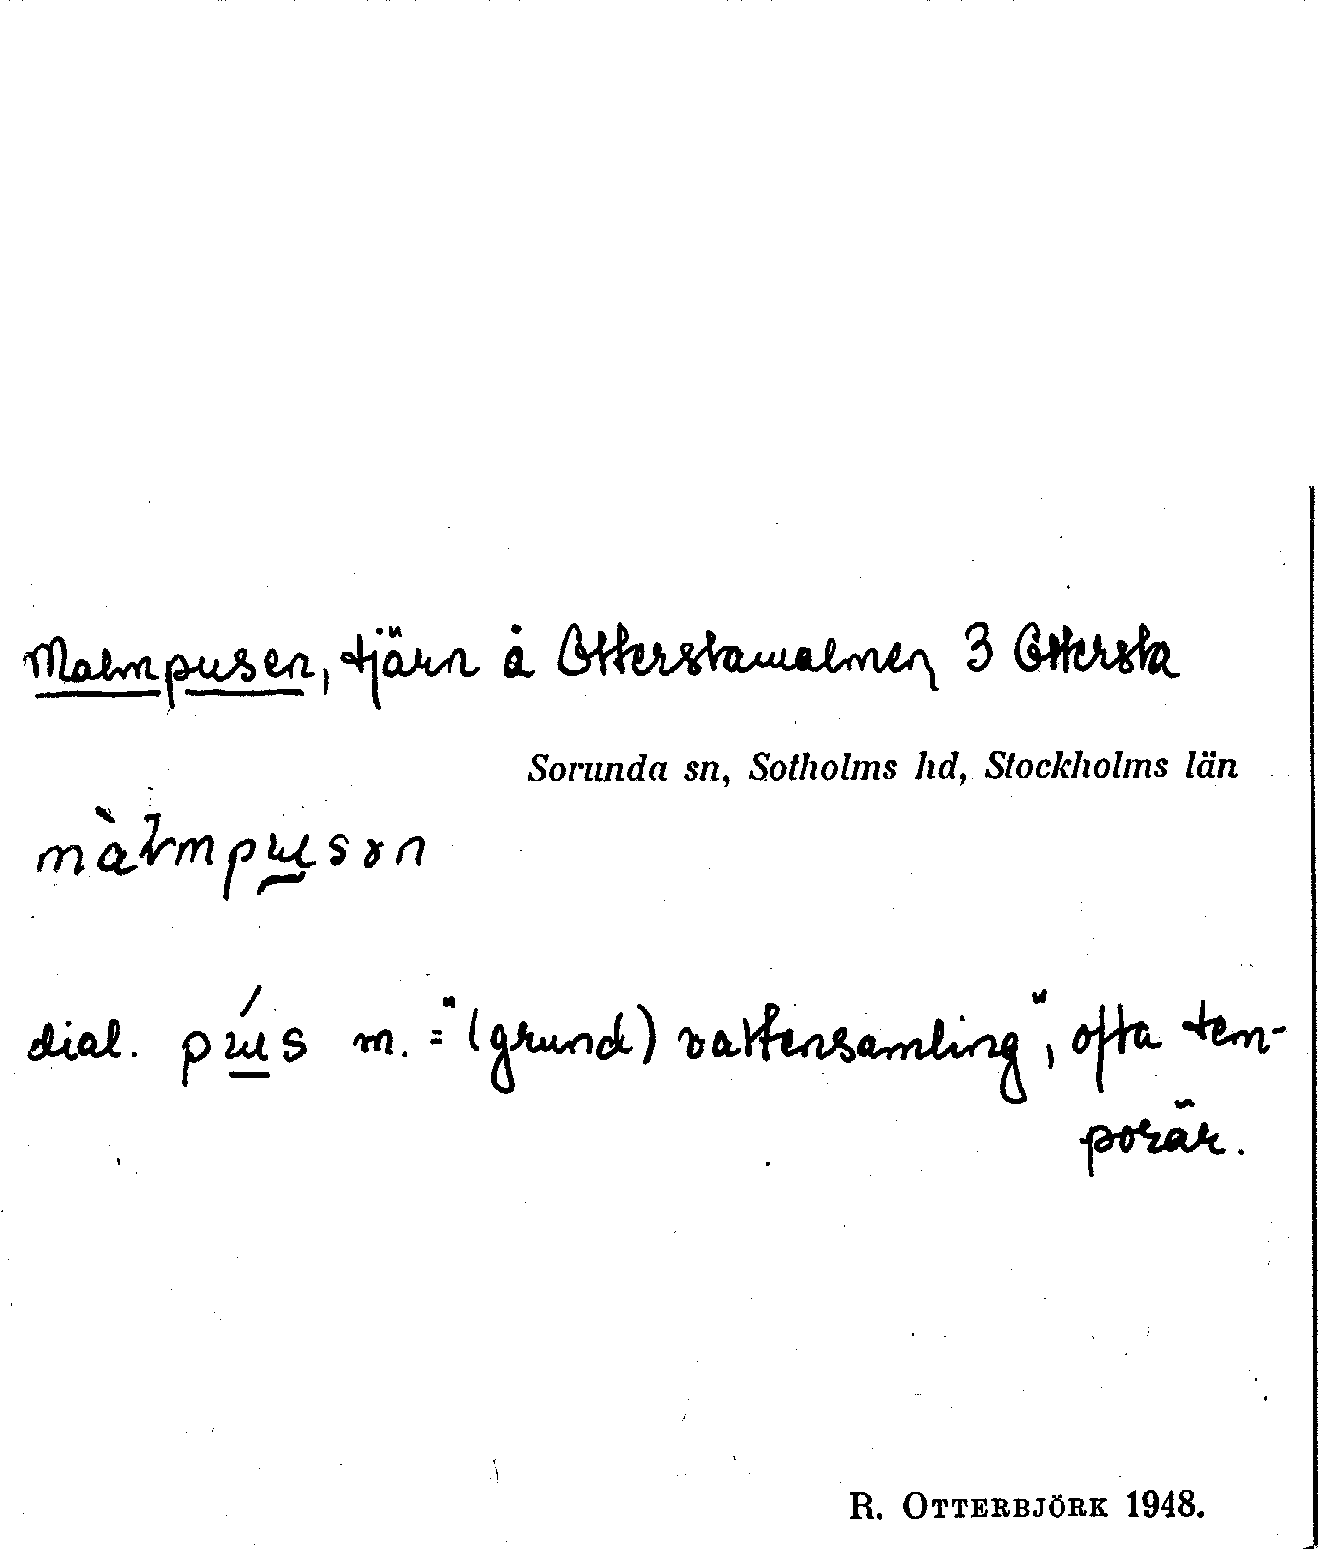 Malmpusen, tjärn å Otterstamalmen 3 Ottersta
Sorunda sn, Sotholms hd, Stockholms län
màɫmpusən
dial. pús m. = "(grund) vattensamling", ofta tem-
porär.
R. OTTERBJÖRK 1948.